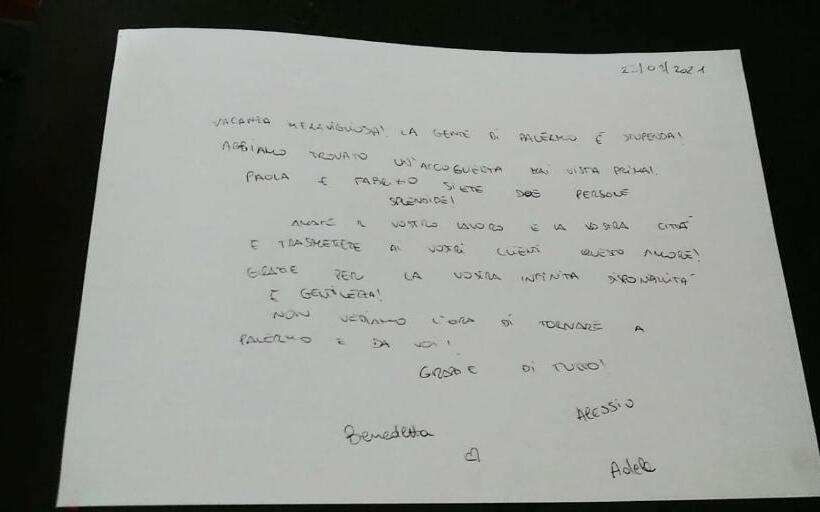 22/09/2021
VACANZA MERAVIGLIOSA! LA GENTE DI PALERMO È STUPENDA!
ABBIAMO TROVATO UN'ACCOGLIENZA MAI VISTA PRIMA!
PAOLA E FABRIZIO SIETE DUE PERSONE
SPLENDIDE!
AMATE IL VOSTRO LAVORO E LA VOSTRA CITTÀ
E TRASMETTETE AI VOSTRI CLIENTI QUESTO AMORE!
GRAZIE PER LA VOSTRA INFINITA DISPONIBILITÀ
E GENTILEZZA!
NON VEDIAMO L'ORA DI TORNARE A
PALERMO E DA VOI!
GRAZIE DI TUTTO!
ALESSIO
Benedetta
Adele